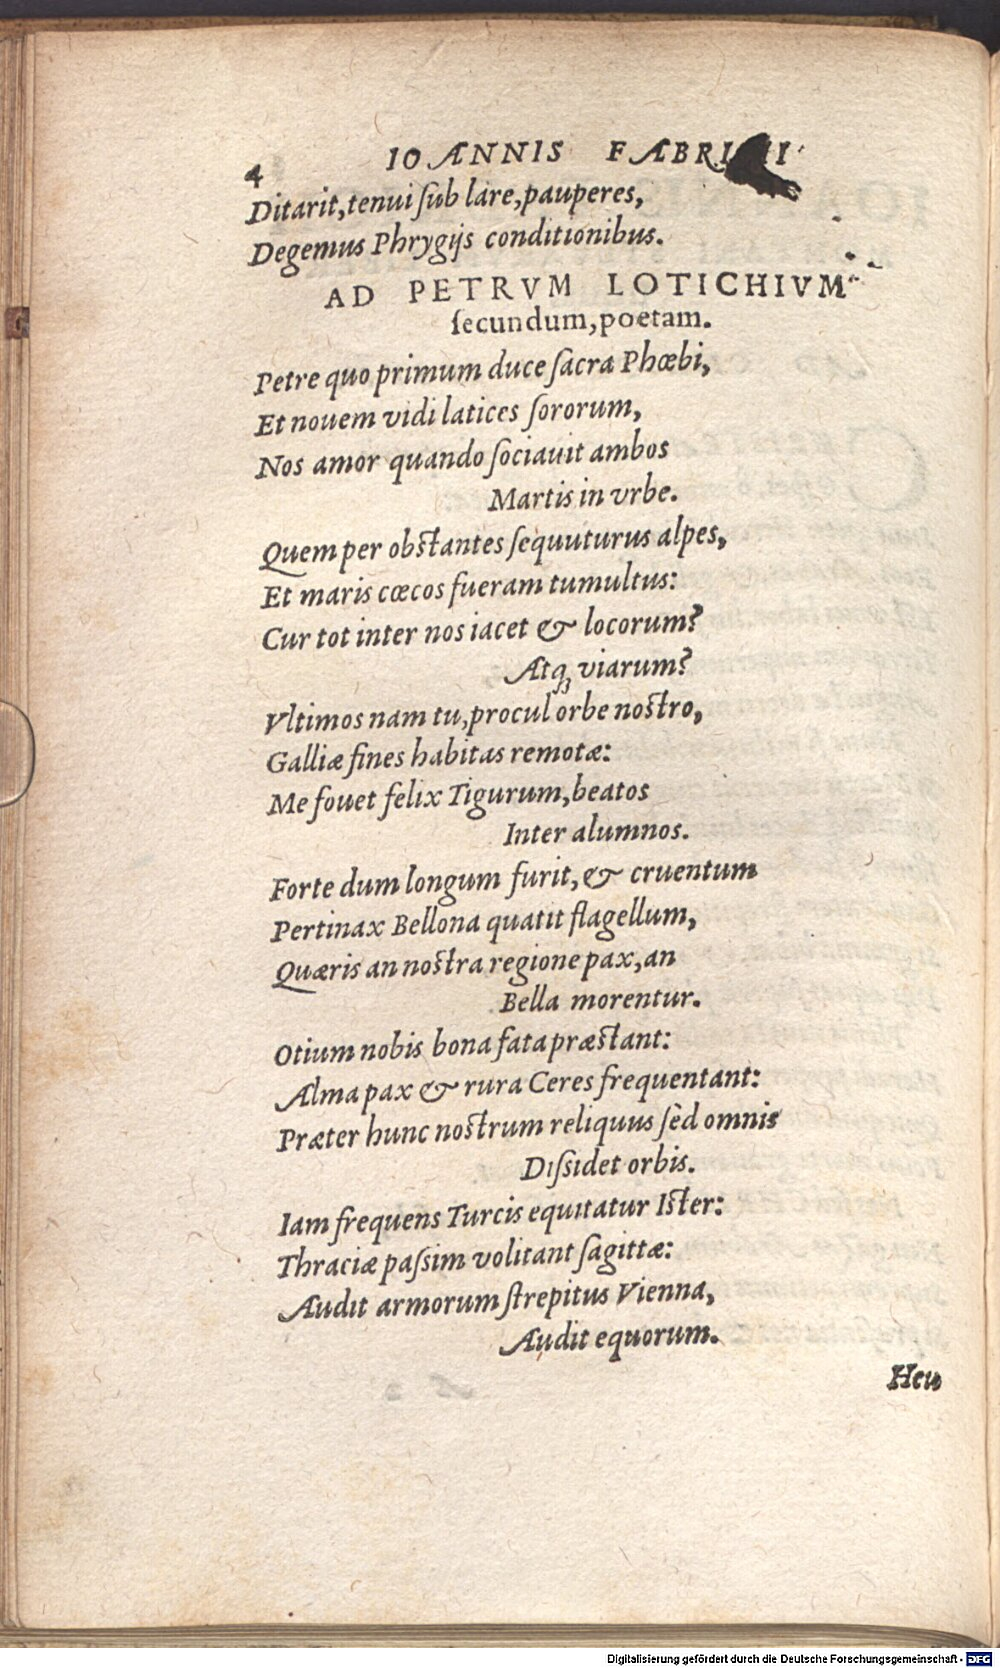 4 IOANNIS FABRI
Ditarit, tenui ſub lare, pauperes,
Degemus Phrygijs conditionibus.
AD PETRVM LOTICHIVM
ſecundum, poetam.
Petre quo primum duce ſacra Phœbi,
Et nouem vidi latices ſororum,
Nos amor quando ſociauit ambos
Martis in vrbe.
Quem per obſtantes ſequuturus alpes,
Et maris cœcos fueram tumultus:
Cur tot inter nos iacet & locorum?
Atq; viarum?
Vltimos nam tu, procul orbe noſtro,
Galliæ fines habitas remotæ:
Me fouet felix Tigurum, beatos
Inter alumnos.
Forte dum longum furit, & cruentum
Pertinax Bellona quatit flagellum,
Quæris an noſtra regione pax, an
Bella morentur.
Otium nobis bona fata præſtant:
Alma pax & rura Ceres frequentant:
Præter hunc noſtrum reliquus ſed omnis
Diſsidet orbis.
Iam frequens Turcis equitatur Iſter:
Thraciæ paſsim volitant ſagittæ:
Audit armorum ſtrepitus Vienna,
Audit equorum.
Heu
Digitalisierung gefördert durch die Deutsche Forschungsgemeinschaft - DFG